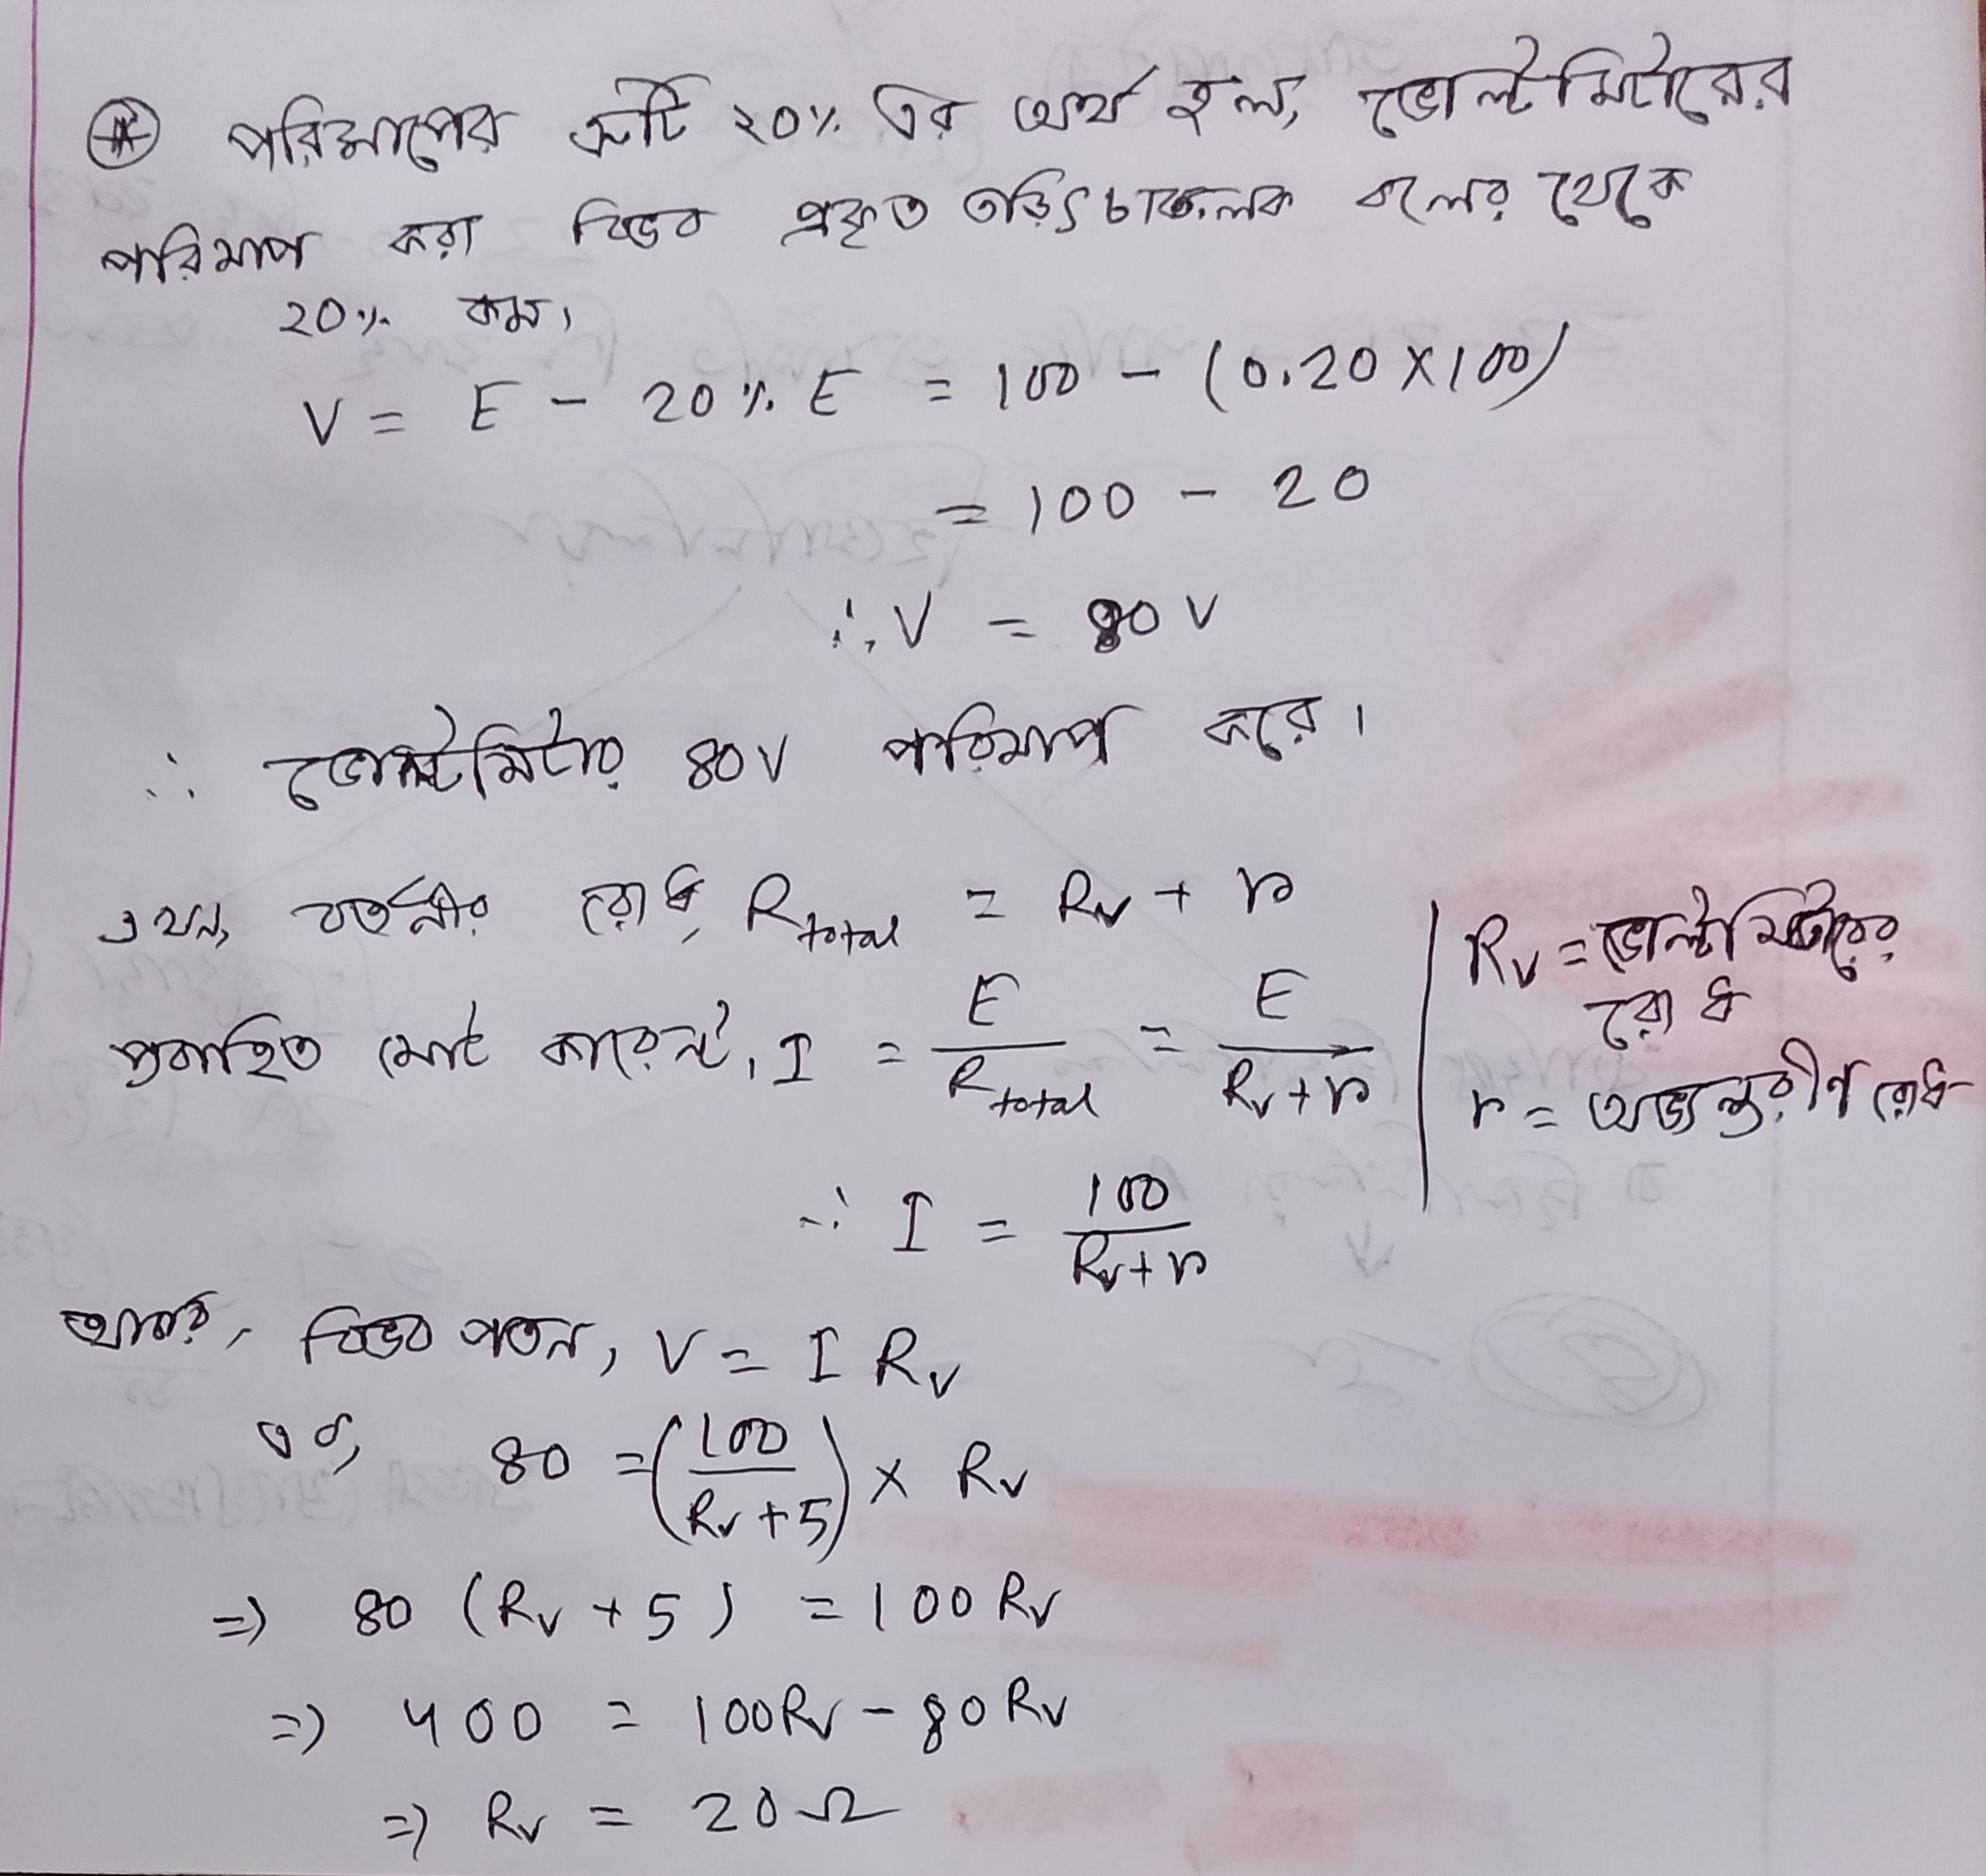 * পরিমাপের ত্রুটি ২০% এর অর্থ হল, ভোল্টমিটারের
পরিমাপ করা বিভব প্রকৃত তড়িৎচালক বলের থেকে
20% কম।
V = E - 20% E = 100 - (0.20 X 100)
= 100 - 20
∴ V = 80 V
∴ ভোল্টমিটার 80V পরিমাপ করে।
এখন, বর্তনীর রোধ, R total = Rv + r
প্রবাহিত মোট কারেন্ট, I = E / R total = E / Rv + r
Rv = ভোল্টমিটারের
রোধ
r = অভ্যন্তরীণ রোধ
∴ I = 100 / Rv + r
আবার, বিভব পতন, V = I Rv
বা, 80 = (100 / Rv + 5) × Rv
=> 80 (Rv + 5) = 100 Rv
=> 400 = 100Rv - 80 Rv
=> Rv = 20 Ω